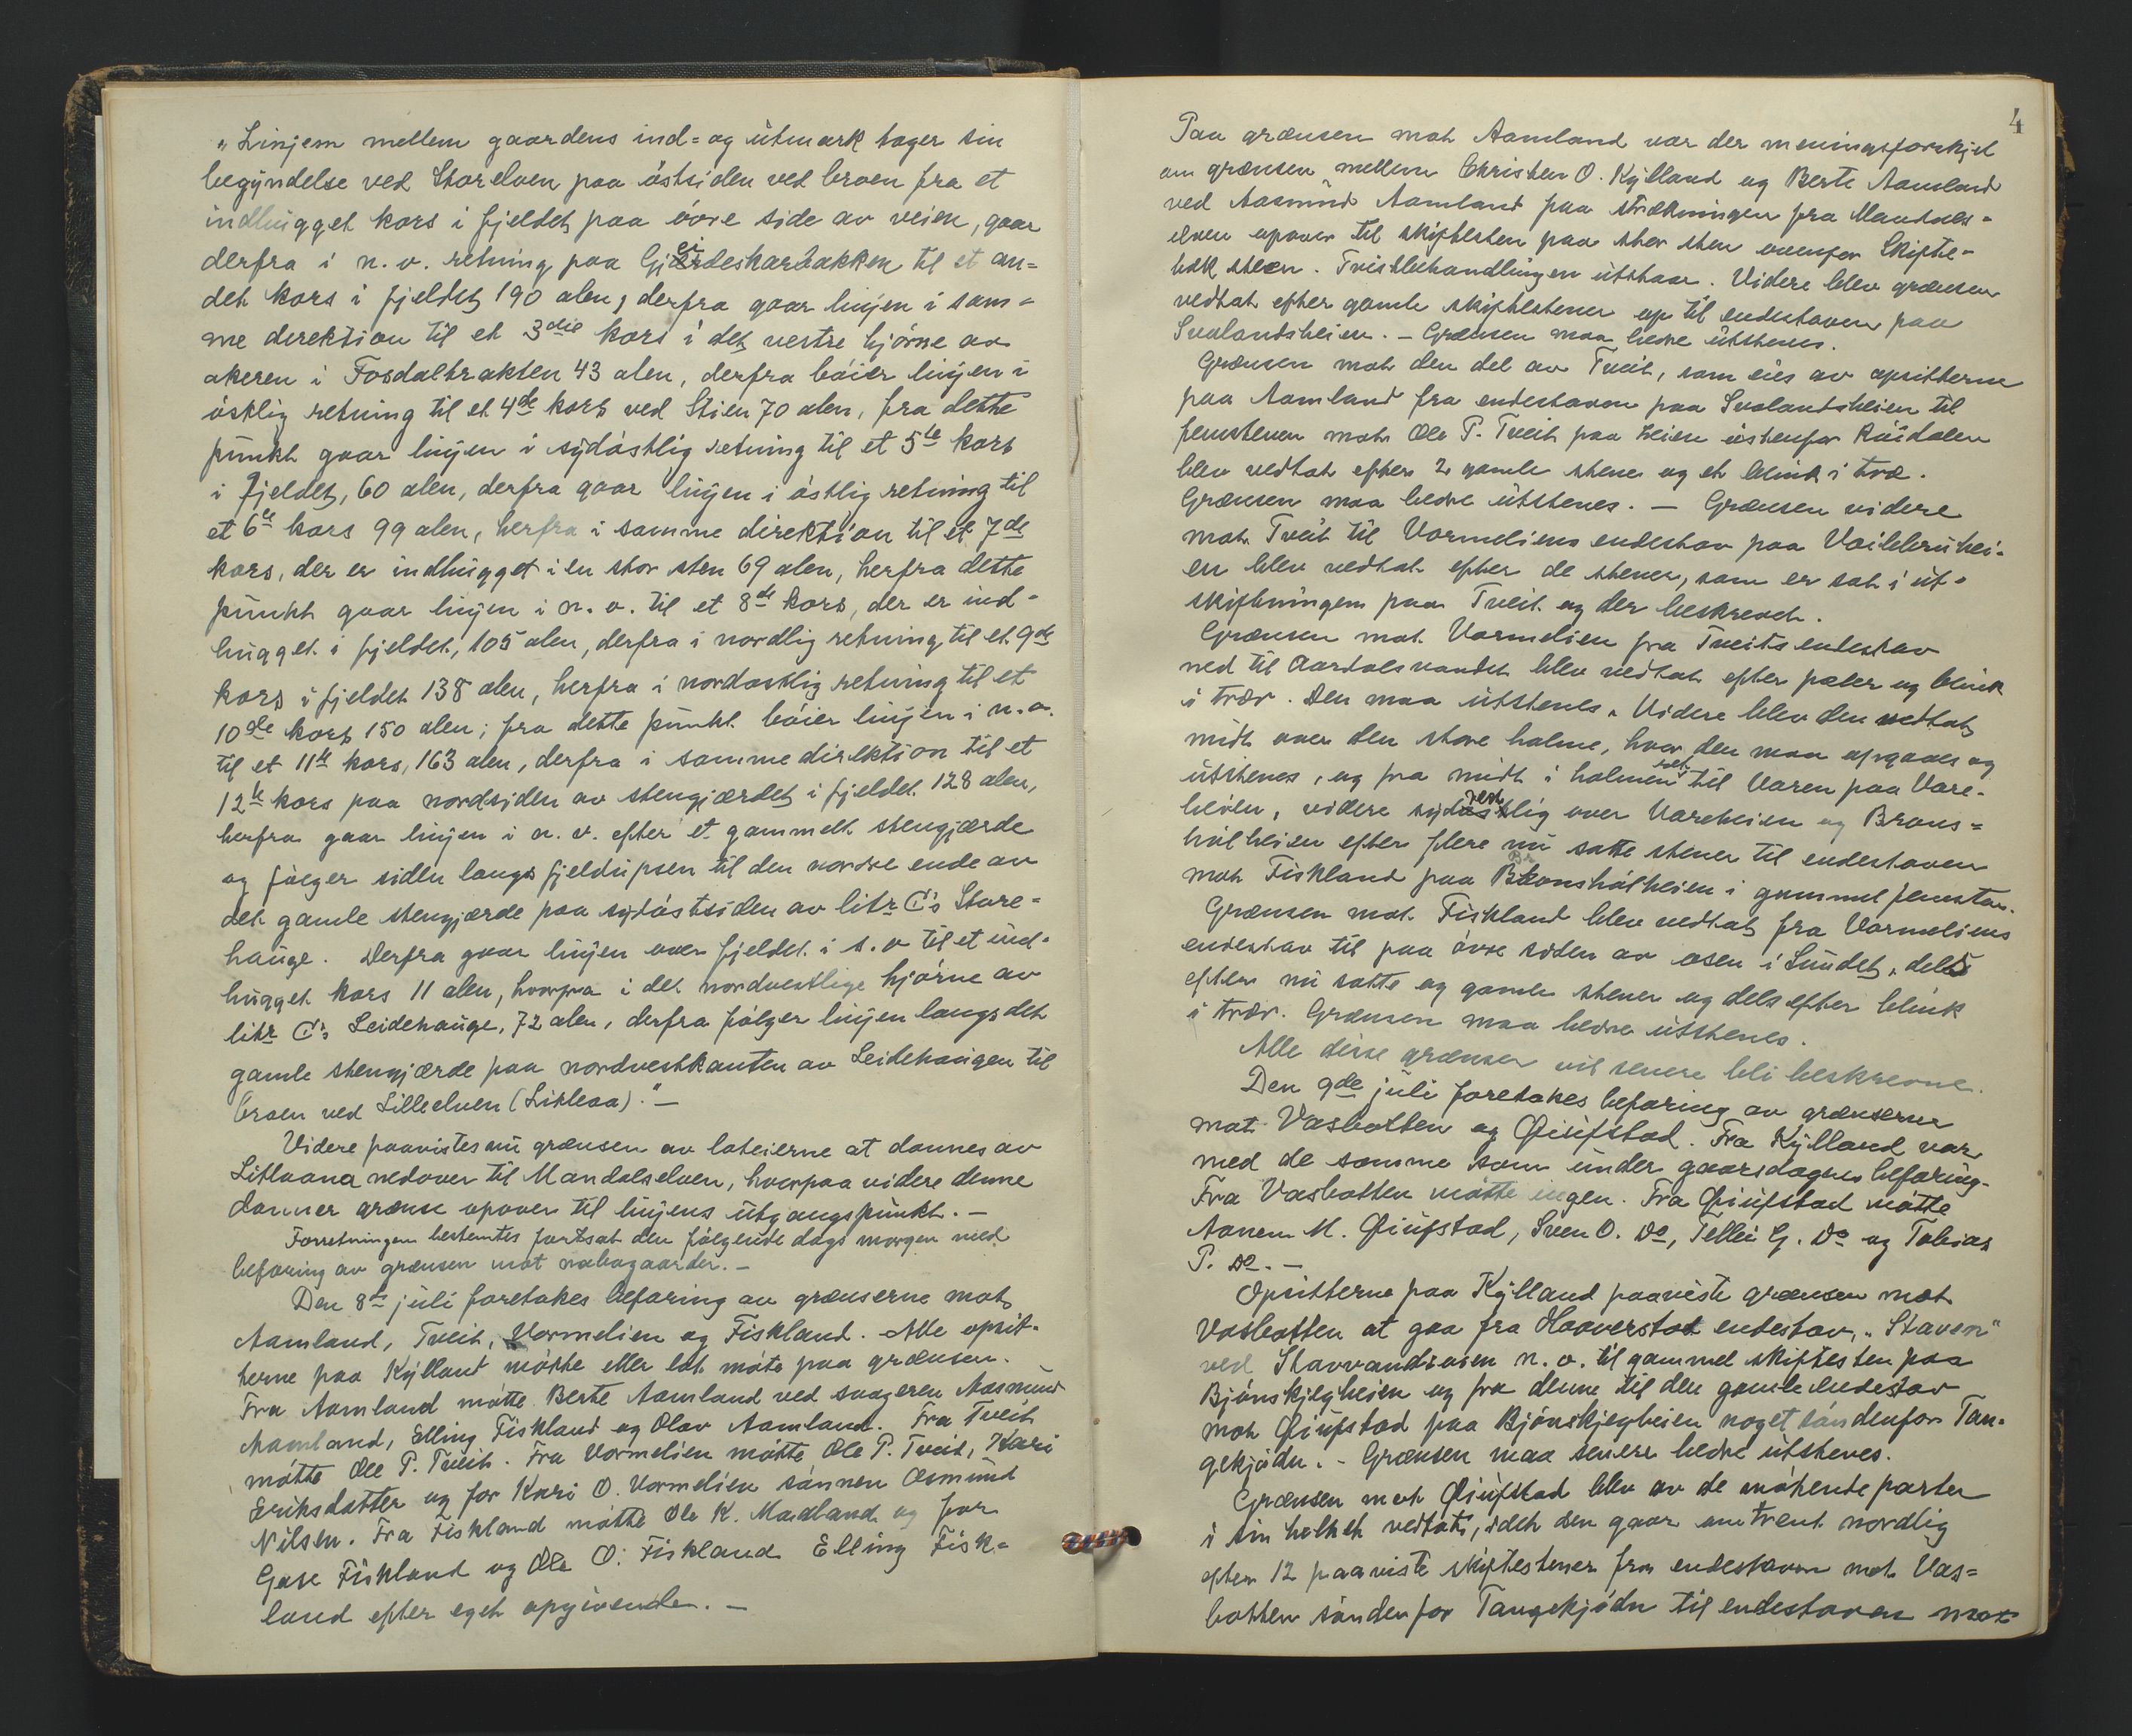 „Linjem mellem gaardens ind= og utmark tager sin
begyndelse ved Storelven paa östsiden ved broen fra et
indhugget kors i fjeldet paa övre side av veien, gaar
derfra i n. v. retning paa Gjeideskarbakken til et an=
det kors i fjeldet 190 alen, derfra gaar linjen i sam=
me direktion til et 3die kors i det vestre hjörne av
akeren i Fosdaltrakten 43 alen, derfra böier linjen i
östlig retning til et 4de kors ved Stien 70 alen, fra dette
punkt gaar linjen i sydöstlig retning til et 5te kors
i Fjeldet, 60 alen, derfra gaar linjen i östlig retning til
et 6te kors 99 alen, herfra i samme direktion til et 7de
kors, der er indhugget i en stor sten 69 alen, herfra dette
punkt gaar linjen i n. o. til et 8de kors, der er ind=
hugget i fjeldet, 105 alen, derfra i nordlig retning til et 9de
kors i fjeldet 138 alen, herfra i nordostlig retning til et
10de kors 150 alen; fra dette punkt böier linjen i n. o.
til et 11te kors, 163 alen, derfra i samme direktion til et
12te kors paa nordsiden av stengjærdet i fjeldet 128 alen,
herfra gaar linjen i n. v. efter et gammelt stengjærde
og fölger siden langs fjeldupsen til den nordre ende av
det gamle stengjærde paa sydöstsiden av litr C's Store=
hauge. Derfra gaar linjen over fjeldet i s. v til et ind=
hugget kors 11 alen, hvorfra i det nordvestlige hjörne av
litr C's Leidehauge, 72 alen, derfra fölger linjen langs det
gamle stengjærde paa nordvestkanten av Leidehaugen til
broen ved Lilleelven (Litleaa)." —
Videre paavistes nu grænsen av loteierne at dannes av
Litleaana nedover til Mandalselven, hvorpaa videre denne
danner grænse opover til linjens utgangspunkt. —
Forretningen bestemtes fortsat den fölgende dags morgen med
befaring av grænsen mot nabogaarder. —
Den 8de juli foretakes befaring av grænserne mot
Aamland, Tveit, Vormelien og Fiskland. Alle opsit=
terne paa Kylland mötte eller lot möte paa grænsen.
Fra Aamland mötte Berte Aamland ved svogeren Aasmund
Aamland, Elling Fiskland og Olav Aamland. Fra Tveit
mötte Ole P. Tveit. Fra Vormelien mötte Ole P. Tveit, Kari
Eriksdatter og for Kari O. Vormelien sönnen Osmund
Nilsen. Fra Fiskland mötte Ole K. Madland og for
Gase Fiskland og Ole O. Fiskland Elling Fisk=
land efter eget opgivende. —
4
Paa grænsen mot Aamland var der meningsforskjel
om grænsen mellem Christen O. Kylland og Berte Aamland
ved Aasmund Aamland paa strækningen fra Mandals=
elven opover til skiftesten paa stor sten ovenfor Skifte=
bæk steen. Tvistbehandlingen utstaar. Videre blev grænsen
vedtat efter gamle skiftestener op til endestaven paa
Svalandsheien. — Grænsen maa bedre utstenes.
Grænsen mot den del av Tveit, som eies av opsitterne
paa Aamland fra endestaven paa Svalandsheien til
femstenen mot Ole P. Tveit paa heien östenfor Ruidalen
blev vedtat efter 2 gamle stene og et blink i træ.
Grænsen maa bedre utstenes. — Grænsen videre
mot Tveit til Vormeliens endestav paa Voilebruhei=
en blev vedtat efter de stener, som er sat i ut=
skiftningen paa Tveit og der beskrevet.
Grænsen mot Vormelien fra Tveits endestav
ned til Aardalsvandet blev vedtat efter pæler og blink
i trær. Den maa utstenes. Videre blev den vedtat
midt over den store holme, hvor den maa opgaaes og
utstenes, og fra midt i holmen ret til Varen paa Vare=
heien, videre sydvestlig over Vareheien og Brons=
hölheien efter flere nu satte stener til endestaven
mot Fiskland paa Bronshölheien i gammel femstav.
Grænsen mot Fiskland blev vedtat fra Vormeliens
endestav til paa övre siden av osen i Sundet, dels
efter nu satte og gamle stener og dels efter blink
i trær. Grænsen maa bedre utstenes.
Alle disse grænser vil senere bli beskrevne.
Den 9de juli foretakes befaring av grænserne
mot Vasbotten og Qviufstad. Fra Kylland var
med de samme som under gaarsdagens befaring.
Fra Vasbotten mötte ingen. Fra Qviufstad mötte
Aanen M. Qviufstad, Sven O. Do, Tellei G. Do og Tobias
P. Do. —
Opsitterne paa Kylland paaviste grænsen mot
Vasbotten at gaa fra Haaverstad endestav, „Staven"
ved Stavvandsosen n. v. til gammel skiftesten paa
Bjönskjegheien og fra denne til den gamle endestav
mot Qviufstad paa Bjönskjegheien noget söndenfor Tan=
gekjödn. - Grænsen maa senere bedre utstenes.
Grænsen mot Qviufstad blev av de mötende parter
i sin helhet vedtat, idet den gaar omtrent nordlig
efter 12 paaviste skiftestener fra endestaven mot Vas=
botten söndenfor Tangekjödn til endestaven mot